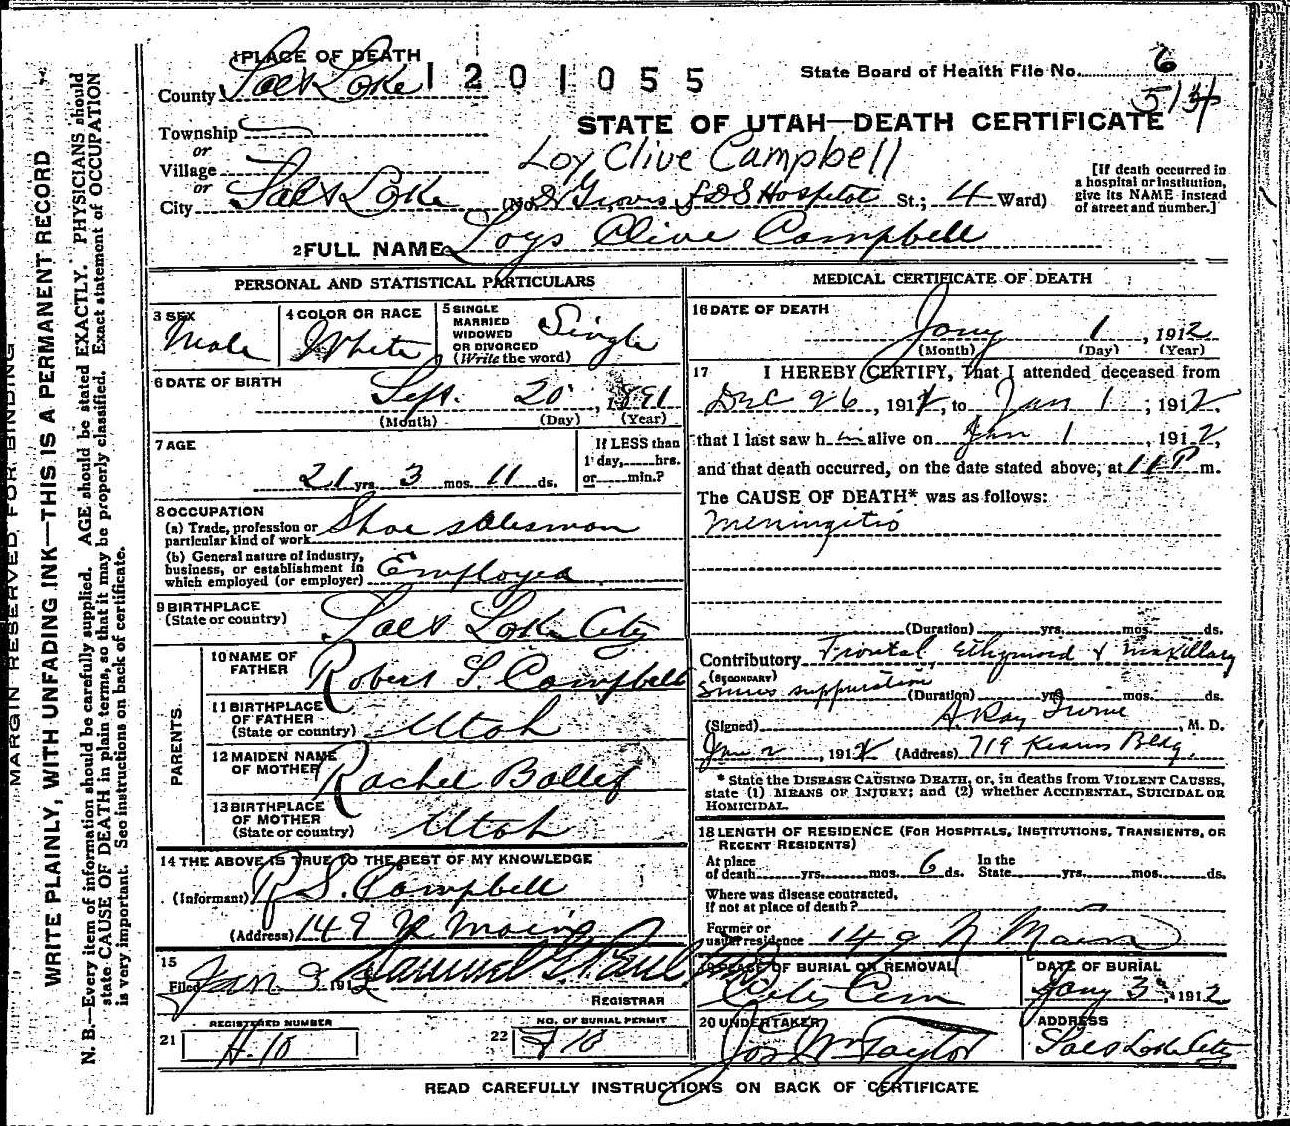 1 PLACE OF DEATH
1201055
State Board of Health File No. 6
County Salt Lake
514
STATE OF UTAH—DEATH CERTIFICATE
Township
or
Loy Clive Campbell
Village
or
City Salt Lake (No. Dr Groves LDS Hospital St.; 4 Ward)
[If death occurred in
a hospital or institution,
give its NAME instead
of street and number.]
2 FULL NAME Loys Clive Campbell
PERSONAL AND STATISTICAL PARTICULARS
3 SEX
Male
4 COLOR OR RACE
White
5 SINGLE
MARRIED
WIDOWED
OR DIVORCED
(Write the word)
Single
6 DATE OF BIRTH
Sept. 20, 1891
(Month) (Day) (Year)
7 AGE
21 yrs. 3 mos. 11 ds.
If LESS than
1 day, hrs.
or min.?
8 OCCUPATION
(a) Trade, profession or
particular kind of work Shoe salesman
(b) General nature of industry,
business, or establishment in
which employed (or employer) Employed
9 BIRTHPLACE
(State or country) Salt Lake City
PARENTS
10 NAME OF
FATHER Robert S. Campbell
11 BIRTHPLACE
OF FATHER
(State or country) Utah
12 MAIDEN NAME
OF MOTHER Rachel
13 BIRTHPLACE
OF MOTHER
(State or country) Utah
14 THE ABOVE IS TRUE TO THE BEST OF MY KNOWLEDGE
(Informant) R S. Campbell
(Address) 149 N Main
15
Filed Jan 3 1912 Samuel G. Paul
REGISTRAR
21
REGISTERED NUMBER
H-10
22
NO. OF BURIAL PERMIT
710
MEDICAL CERTIFICATE OF DEATH
16 DATE OF DEATH
Jany 1, 1912
(Month) (Day) (Year)
17 I HEREBY CERTIFY, That I attended deceased from
Dec 26, 191, to Jan 1; 1912,
that I last saw h im alive on Jan 1, 1912,
and that death occurred, on the date stated above, at 11 P m.
The CAUSE OF DEATH* was as follows:
Meningitis
(Duration) yrs. mos. ds.
Contributory Frontal, Ethymoid & maxillary
(SECONDARY)
Sinus suppuration
(Duration) yrs. mos. ds.
(Signed) A Ray Irvine, M. D.
Jan 2, 1912 (Address) 719 Kearns Bldg.
* State the DISEASE CAUSING DEATH, or, in deaths from VIOLENT CAUSES,
state (1) MEANS OF INJURY; and (2) whether ACCIDENTAL, SUICIDAL OR
HOMICIDAL.
18 LENGTH OF RESIDENCE (FOR HOSPITALS, INSTITUTIONS, TRANSIENTS, OR
RECENT RESIDENTS)
At place
of death yrs. mos. 6 ds.
In the
State yrs. mos. ds.
Where was disease contracted,
if not at place of death?
Former or
usual residence 149 N Main
19 PLACE OF BURIAL OR REMOVAL
City Cem
DATE OF BURIAL
Jany 3, 1912
20 UNDERTAKER
Jos Wm Taylor
ADDRESS
Salt Lake City
READ CAREFULLY INSTRUCTIONS ON BACK OF CERTIFICATE
MARGIN RESERVED FOR BINDING
WRITE PLAINLY, WITH UNFADING INK—THIS IS A PERMANENT RECORD
N. B.—Every item of information should be carefully supplied. AGE should be stated EXACTLY. PHYSICIANS should
state CAUSE OF DEATH in plain terms, so that it may be properly classified. Exact statement of OCCUPATION
is very important. See instructions on back of certificate.